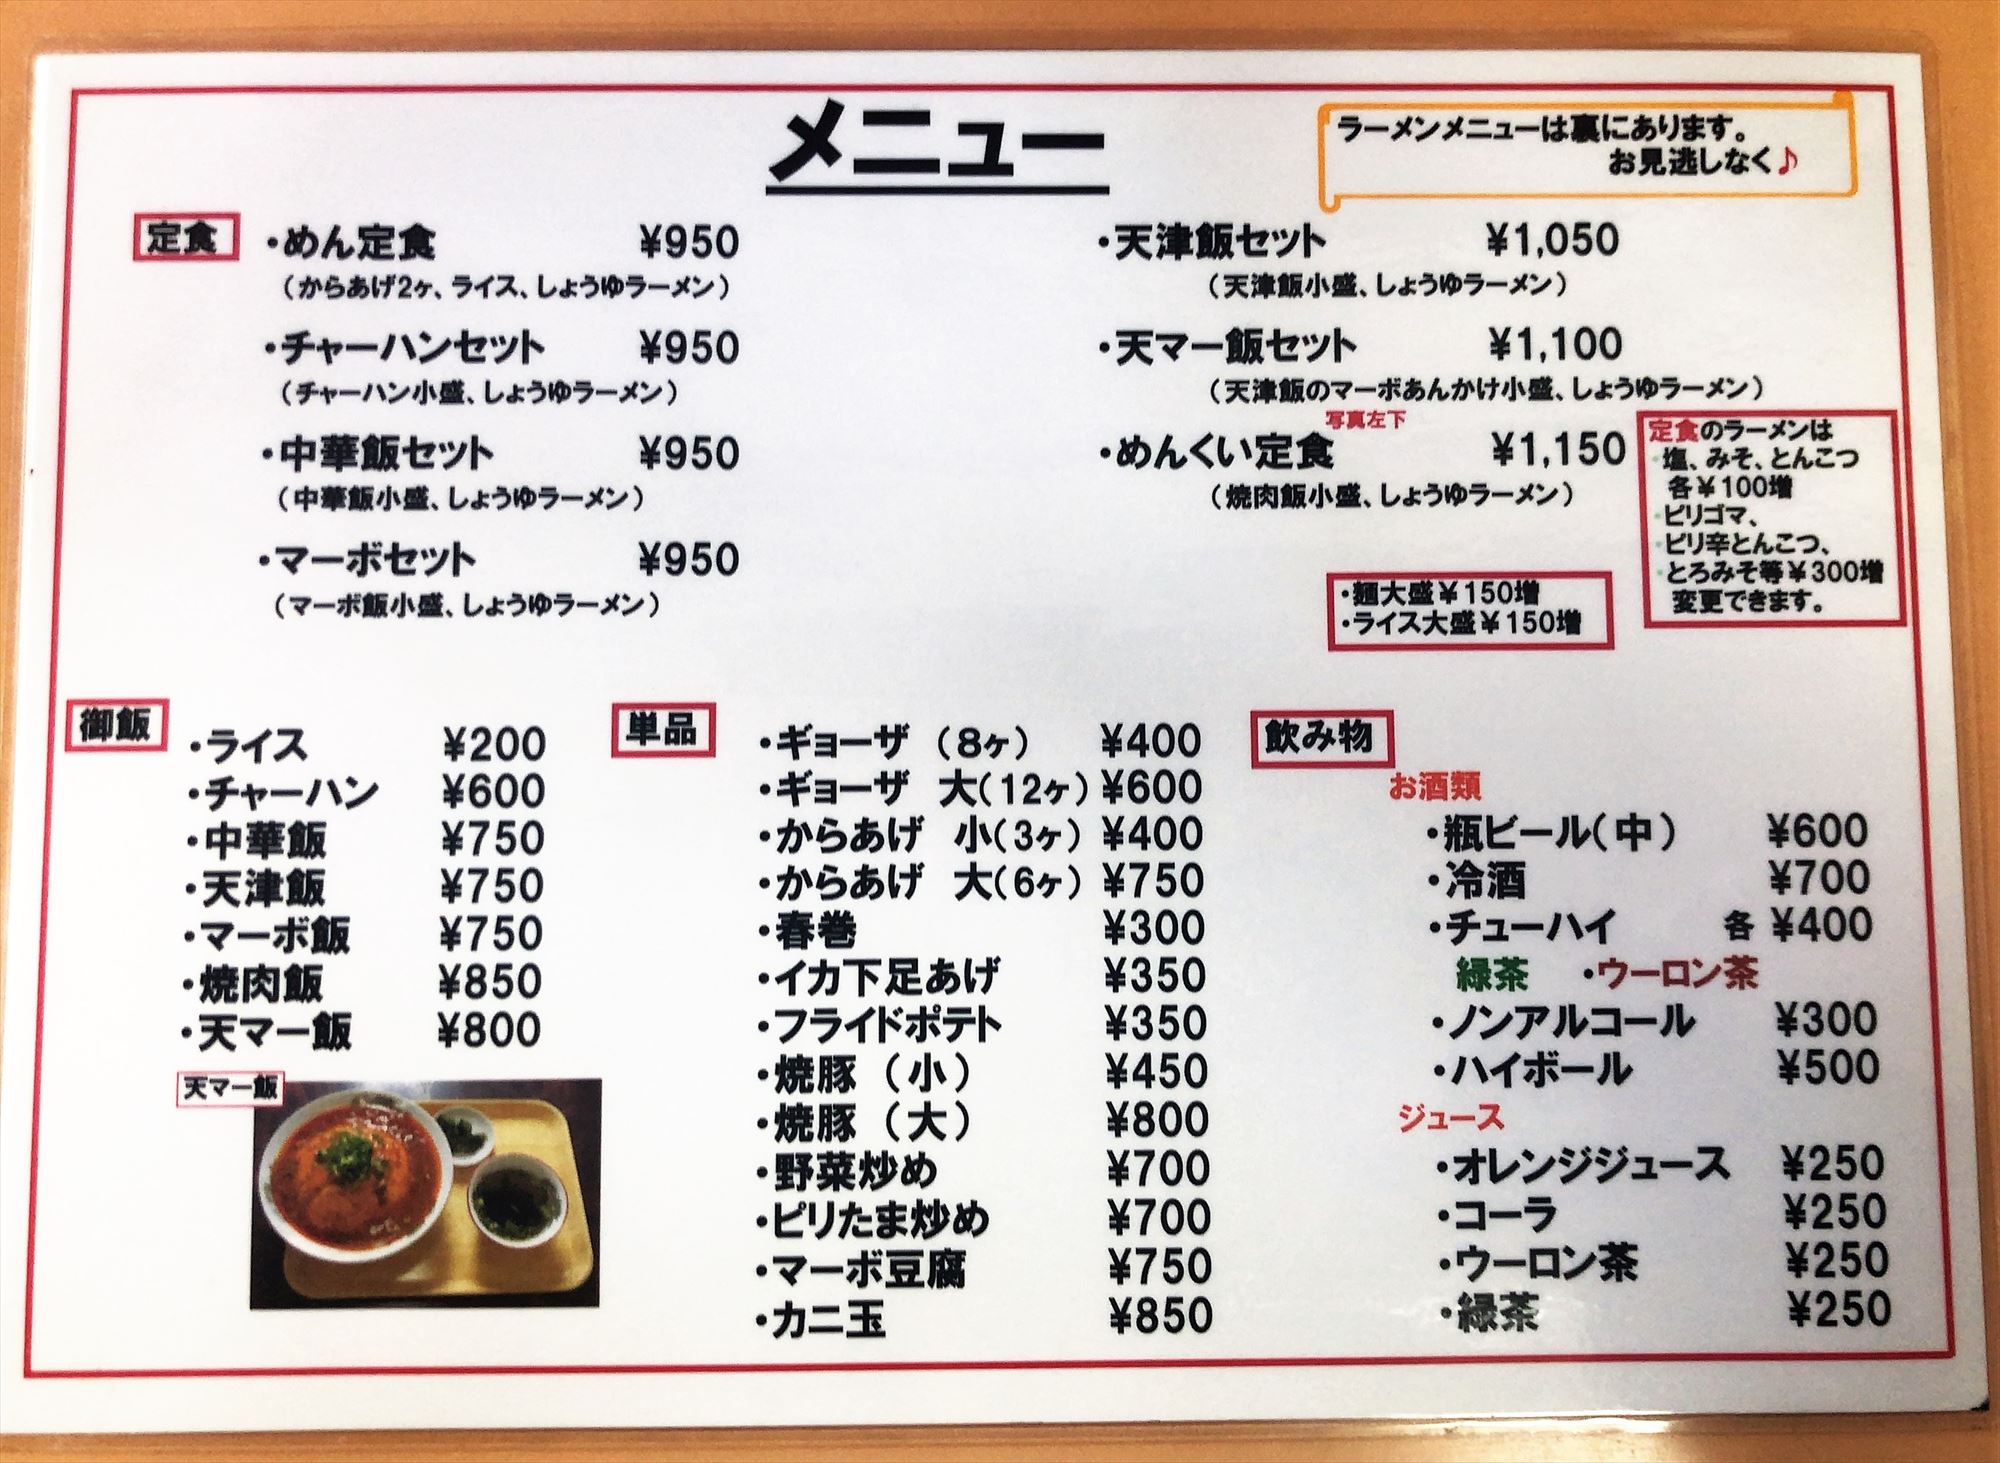 メニュー
ラーメンメニューは裏にあります。
お見逃しなく♪
定食
・めん定食 ¥950
(からあげ2ヶ、ライス、しょうゆラーメン)
・チャーハンセット ¥950
(チャーハン小盛、しょうゆラーメン)
・中華飯セット ¥950
(中華飯小盛、しょうゆラーメン)
・マーボセット ¥950
(マーボ飯小盛、しょうゆラーメン)
・天津飯セット ¥1,050
(天津飯小盛、しょうゆラーメン)
・天マー飯セット ¥1,100
(天津飯のマーボあんかけ小盛、しょうゆラーメン)
写真左下
・めんくい定食 ¥1,150
(焼肉飯小盛、しょうゆラーメン)
定食のラーメンは
・塩、みそ、とんこつ
各¥100増
・ピリゴマ、
・ピリ辛とんこつ、
・とろみそ等¥300増
変更できます。
・麺大盛¥150増
・ライス大盛¥150増
御飯
・ライス ¥200
・チャーハン ¥600
・中華飯 ¥750
・天津飯 ¥750
・マーボ飯 ¥750
・焼肉飯 ¥850
・天マー飯 ¥800
天マー飯
単品
・ギョーザ (8ヶ) ¥400
・ギョーザ 大(12ヶ) ¥600
・からあげ 小(3ヶ) ¥400
・からあげ 大(6ヶ) ¥750
・春巻 ¥300
・イカ下足あげ ¥350
・フライドポテト ¥350
・焼豚 (小) ¥450
・焼豚 (大) ¥800
・野菜炒め ¥700
・ピリたま炒め ¥700
・マーボ豆腐 ¥750
・カニ玉 ¥850
飲み物
お酒類
・瓶ビール(中) ¥600
・冷酒 ¥700
・チューハイ 各 ¥400
緑茶 ・ウーロン茶
・ノンアルコール ¥300
・ハイボール ¥500
ジュース
・オレンジジュース ¥250
・コーラ ¥250
・ウーロン茶 ¥250
・緑茶 ¥250